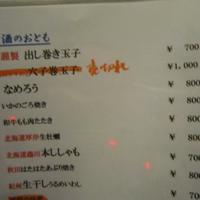 酒のおとも
謹製 出し巻き玉子 ¥ 700
穴子巻玉子 売切れ ¥1,000
なめろう ¥ 800
いかのごろ焼き ¥ 800
和牛もも肉たたき ¥ 800
北海道厚岸 生牡蠣 ¥ 800
北海道鵡川 本ししゃも ¥ 700
秋田はたはたあぶり焼き ¥ 800
紀州 生干しうるめいわし ¥